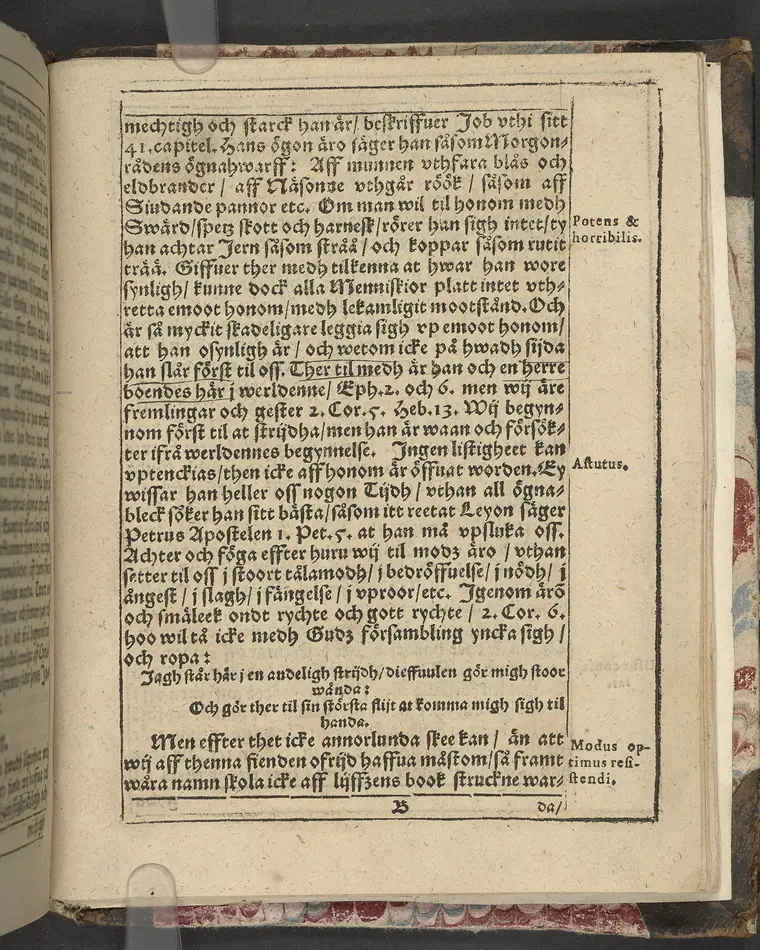 mechtigh och starck han är/ beskriffuer Job vthi sitt
41. capitel. Hans ögon äro säger han såsom Morgon-
rådens ögnahwarff: Aff munnen vthfara blås och
eldbrander / aff Näsonge vthgår röök / såsom aff
Siudande pannor etc. Om man wil til honom medh
Swärd/spetz skott och harnesk/rörer han sigh intet/ty
han achtar Jern såsom stråå / och koppar såsom rutit
trää. Giffuer ther medh tilkenna at hwar han wore
synligh/ kunne dock alla Menniskior platt intet vth-
retta emoot honom/medh lekamligit mootstånd. Och
är så myckit skadeligare leggia sigh vp emoot honom/
att han osynligh är / och wetom icke på hwadh sijda
han slår först til oss. Ther til medh är han och en herre
boendes här j werldenne/ Eph. 2. och 6. men wij äre
fremlingar och gester 2. Cor. 5. Heb. 13. Wij begyn-
nom först til at strijdha/men han är waan och försök-
ter ifrå werldennes begynnelse. Ingen listigheet kan
vptenckias/then icke aff honom är öffuat worden. Ey
wissar han heller oss nogon Tijdh / vthan all ögna-
bleck söker han sitt bästa/såsom itt reetat Leyon säger
Petrus Apostelen 1. Pet. 5. at han må vpsluka oss.
Achter och föga effter huru wij til modz äro / vthan
setter til oss j stoort tålamodh/ j bedröffuelse/ j nödh/ j
ångest / j slagh/ j fängelse / j vproor/etc. Igenom äro
och smäleek ondt rychte och gott rychte / 2. Cor. 6.
hoo wil tå icke medh Gudz försambling yncka sigh /
och ropa:
Jagh står här j en andeligh strijdh/dieffuulen gör migh stoor
wånda:
Och gör ther til sin största flijt at komma migh sigh til
handa.
Men effter thet icke annorlunda skee kan / än att
wij aff thenna fienden ofrijd haffua måstom/så framt
wåra namn skola icke aff lijffzens book struckne war-
B da/
Potens &
horribilis.
Astutus.
Modus op-
timus resi-
stendi.